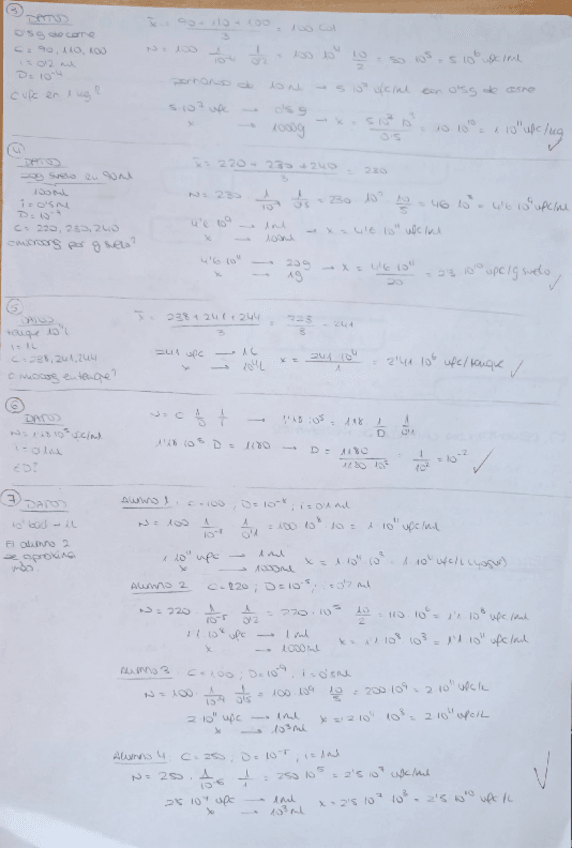 ③ DATOS
0'5g de carne
C = 90, 110, 100
i = 0'2 ml
D = 10⁻⁴
c ufc en 1 kg?
x̄ = 90 + 110 + 100 / 3 = 100 col
N = 100 1/10⁻⁴ 1/0'2 = 100 10⁴ 10/2 = 50 10⁵ = 5 10⁶ ufc/ml
de 10 ml → 5 10⁷ ufc/ml con 0'5g de carne
5 10⁷ ufc → 0'5g
x → 1000g → x = 5 10⁷ 10³ / 0'5 = 10 10¹⁰ = 1 10¹¹ ufc/kg ✓
④ DATOS
20g suelo en 90ml
100ml
i = 0'5ml
D = 10⁻⁷
C = 220, 230, 240
c microorg por g suelo?
x̄ = 220 + 230 + 240 / 3 = 230
N = 230 · 1/10⁻⁷ 1/0'5 = 230 10⁷ · 10/5 = 460 10⁷ = 4'6 10⁹ ufc/ml
4'6 10⁹ → 1ml
x → 100ml → x = 4'6 10¹¹ ufc/ml
4'6 10¹¹ → 20g
x → 1g → x = 4'6 10¹¹ / 20 = 23 10¹⁰ ufc/g suelo ✓
⑤ DATOS
tanque 10⁴L
i = 1L
C = 238, 241, 244
c microorg en tanque?
x̄ = 238 + 241 + 244 / 3 = 723 / 3 = 241
241 ufc → 1L
x → 10⁴L x = 241 10⁴ / 1 = 2'41 10⁶ ufc/tanque ✓
⑥ DATOS
N = 1'18 10⁵ ufc/ml
i = 0'1ml
¿D?
N = C 1/D 1/i → 1'18 10⁵ = 118 1/D 1/0'1
1'18 10⁵ D = 1180 → D = 1180 / 1180 10² = 1/10² = 10⁻² ✓
⑦ DATOS
- 1L
El alumno 2
se aproxima
más.
Alumno 1 C = 100, D = 10⁻⁸, i = 0'1ml
N = 100 1/10⁻⁸ 1/0'1 = 100 10⁸ 10 = 1 10¹¹ ufc/ml
1 10¹¹ ufc → 1ml
x → 1000ml
Alumno 2 C = 220; D = 10⁻⁵; i = 0'2 ml
N = 220 1/10⁻⁵ 1/0'2 = 220 · 10⁵ 10/2 = 110 · 10⁶ = 1'1 10⁸ ufc/ml
1'1 10⁸ ufc → 1 ml
x → 1000ml x = 1'1 10⁸ 10³ = 1'1 10¹¹ ufc/ml
Alumno 3 C = 100; D = 10⁻⁹, i = 0'5ml
N = 100 · 1/10⁻⁹ 1/0'5 = 100 · 10⁹ 10/5 = 200 10⁹ = 2 10¹¹ ufc/L
2 10¹¹ ufc → 1ml
x → 10³ml x = 2 10¹¹ 10³ = 2 10¹¹ ufc/L
Alumno 4 C = 250, D = 10⁻⁵, i = 1ml
N = 250 · 1/10⁻⁵ 1/1 = 250 10⁵ = 2'5 10⁷ ufc/ml
25 10⁷ ufc → 1ml
x → 10³ml x = 2'5 10⁷ 10³ = 2'5 10¹⁰ ufc/L ✓